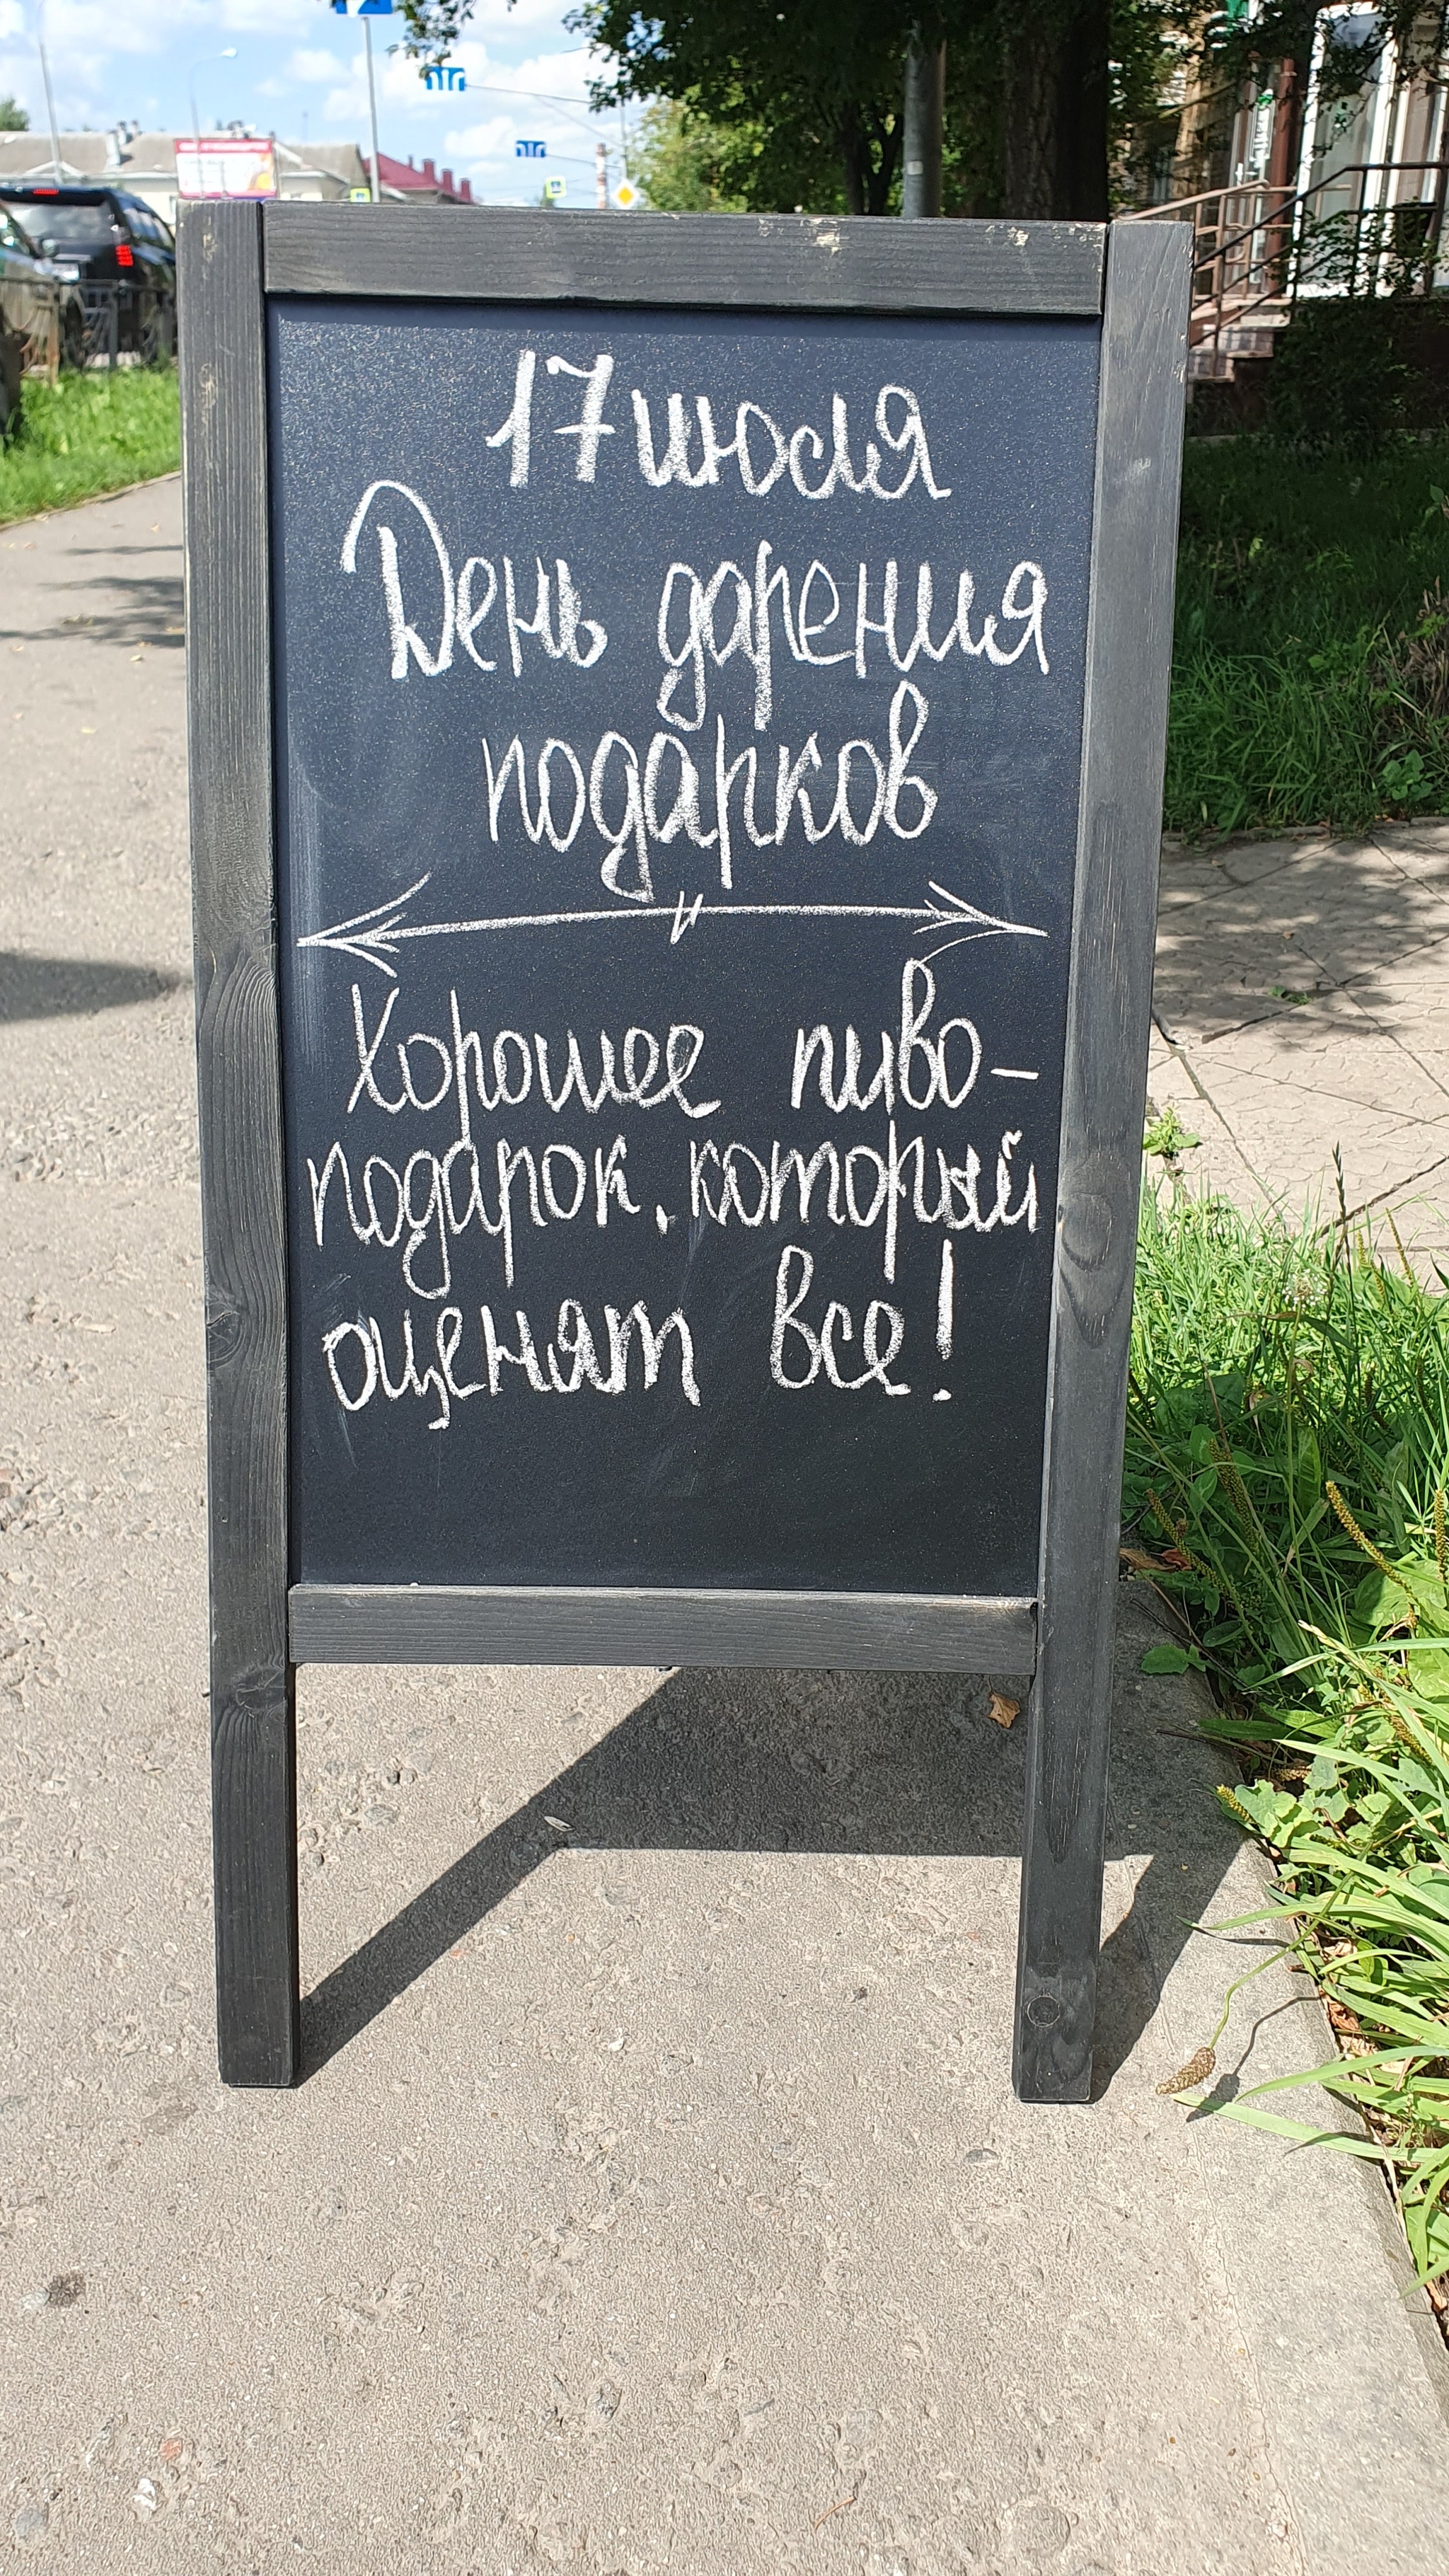 17 июля
День дарения
подарков
Хорошее пиво-
подарок, который
оценят все!